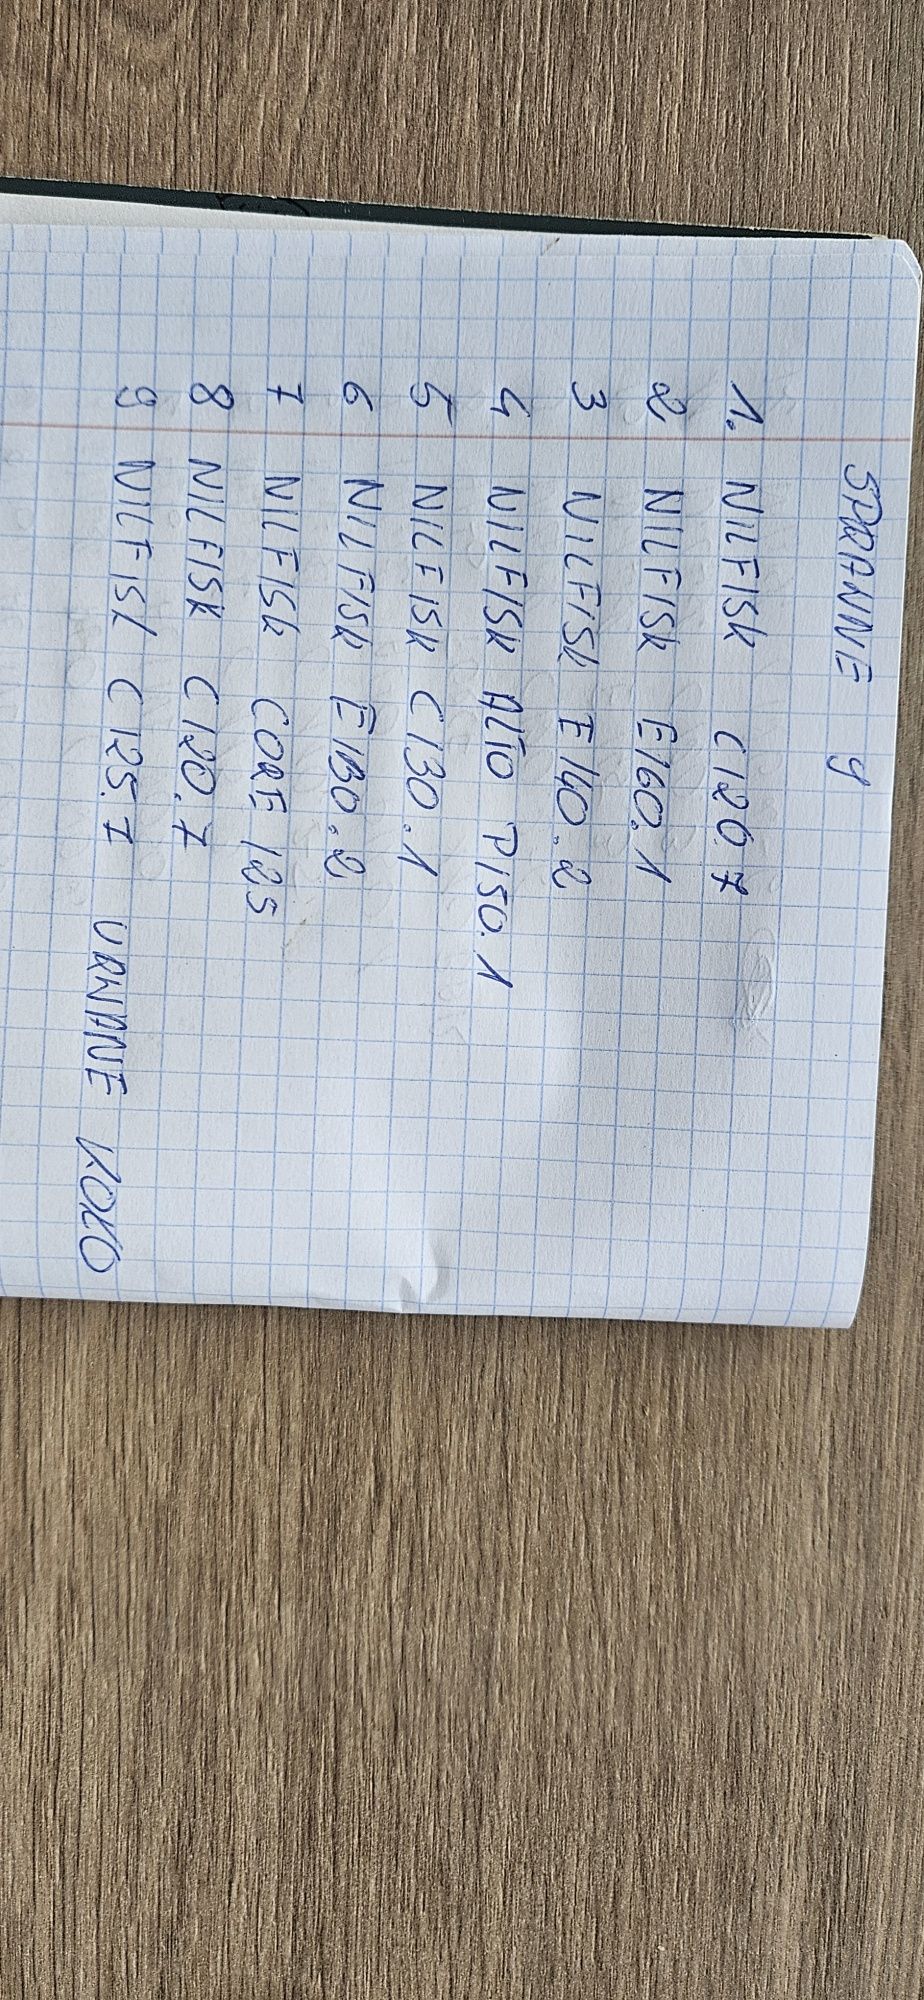 SPRAWNE 9
1. NILFISK C120.7
2. NILFISK E160.1
3 NILFISK E140.2
4 NILFISK ALTO P150.1
5 NILFISK C130.1
6 NILFISK E130.2
7 NILFISK CORE 125
8 NILFISK C120.7
9 NILFISK C125.7 URWANE KOŁO